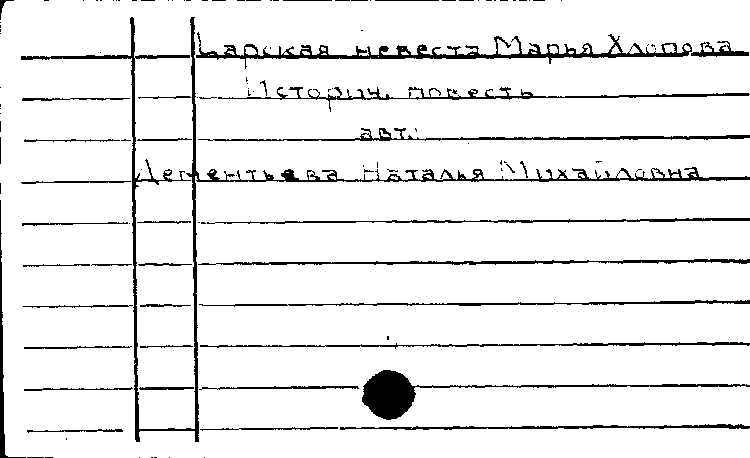 Царская невеста Марья Хлопова
Историч. повесть
авт.:
Дементьева Наталья Михайловна